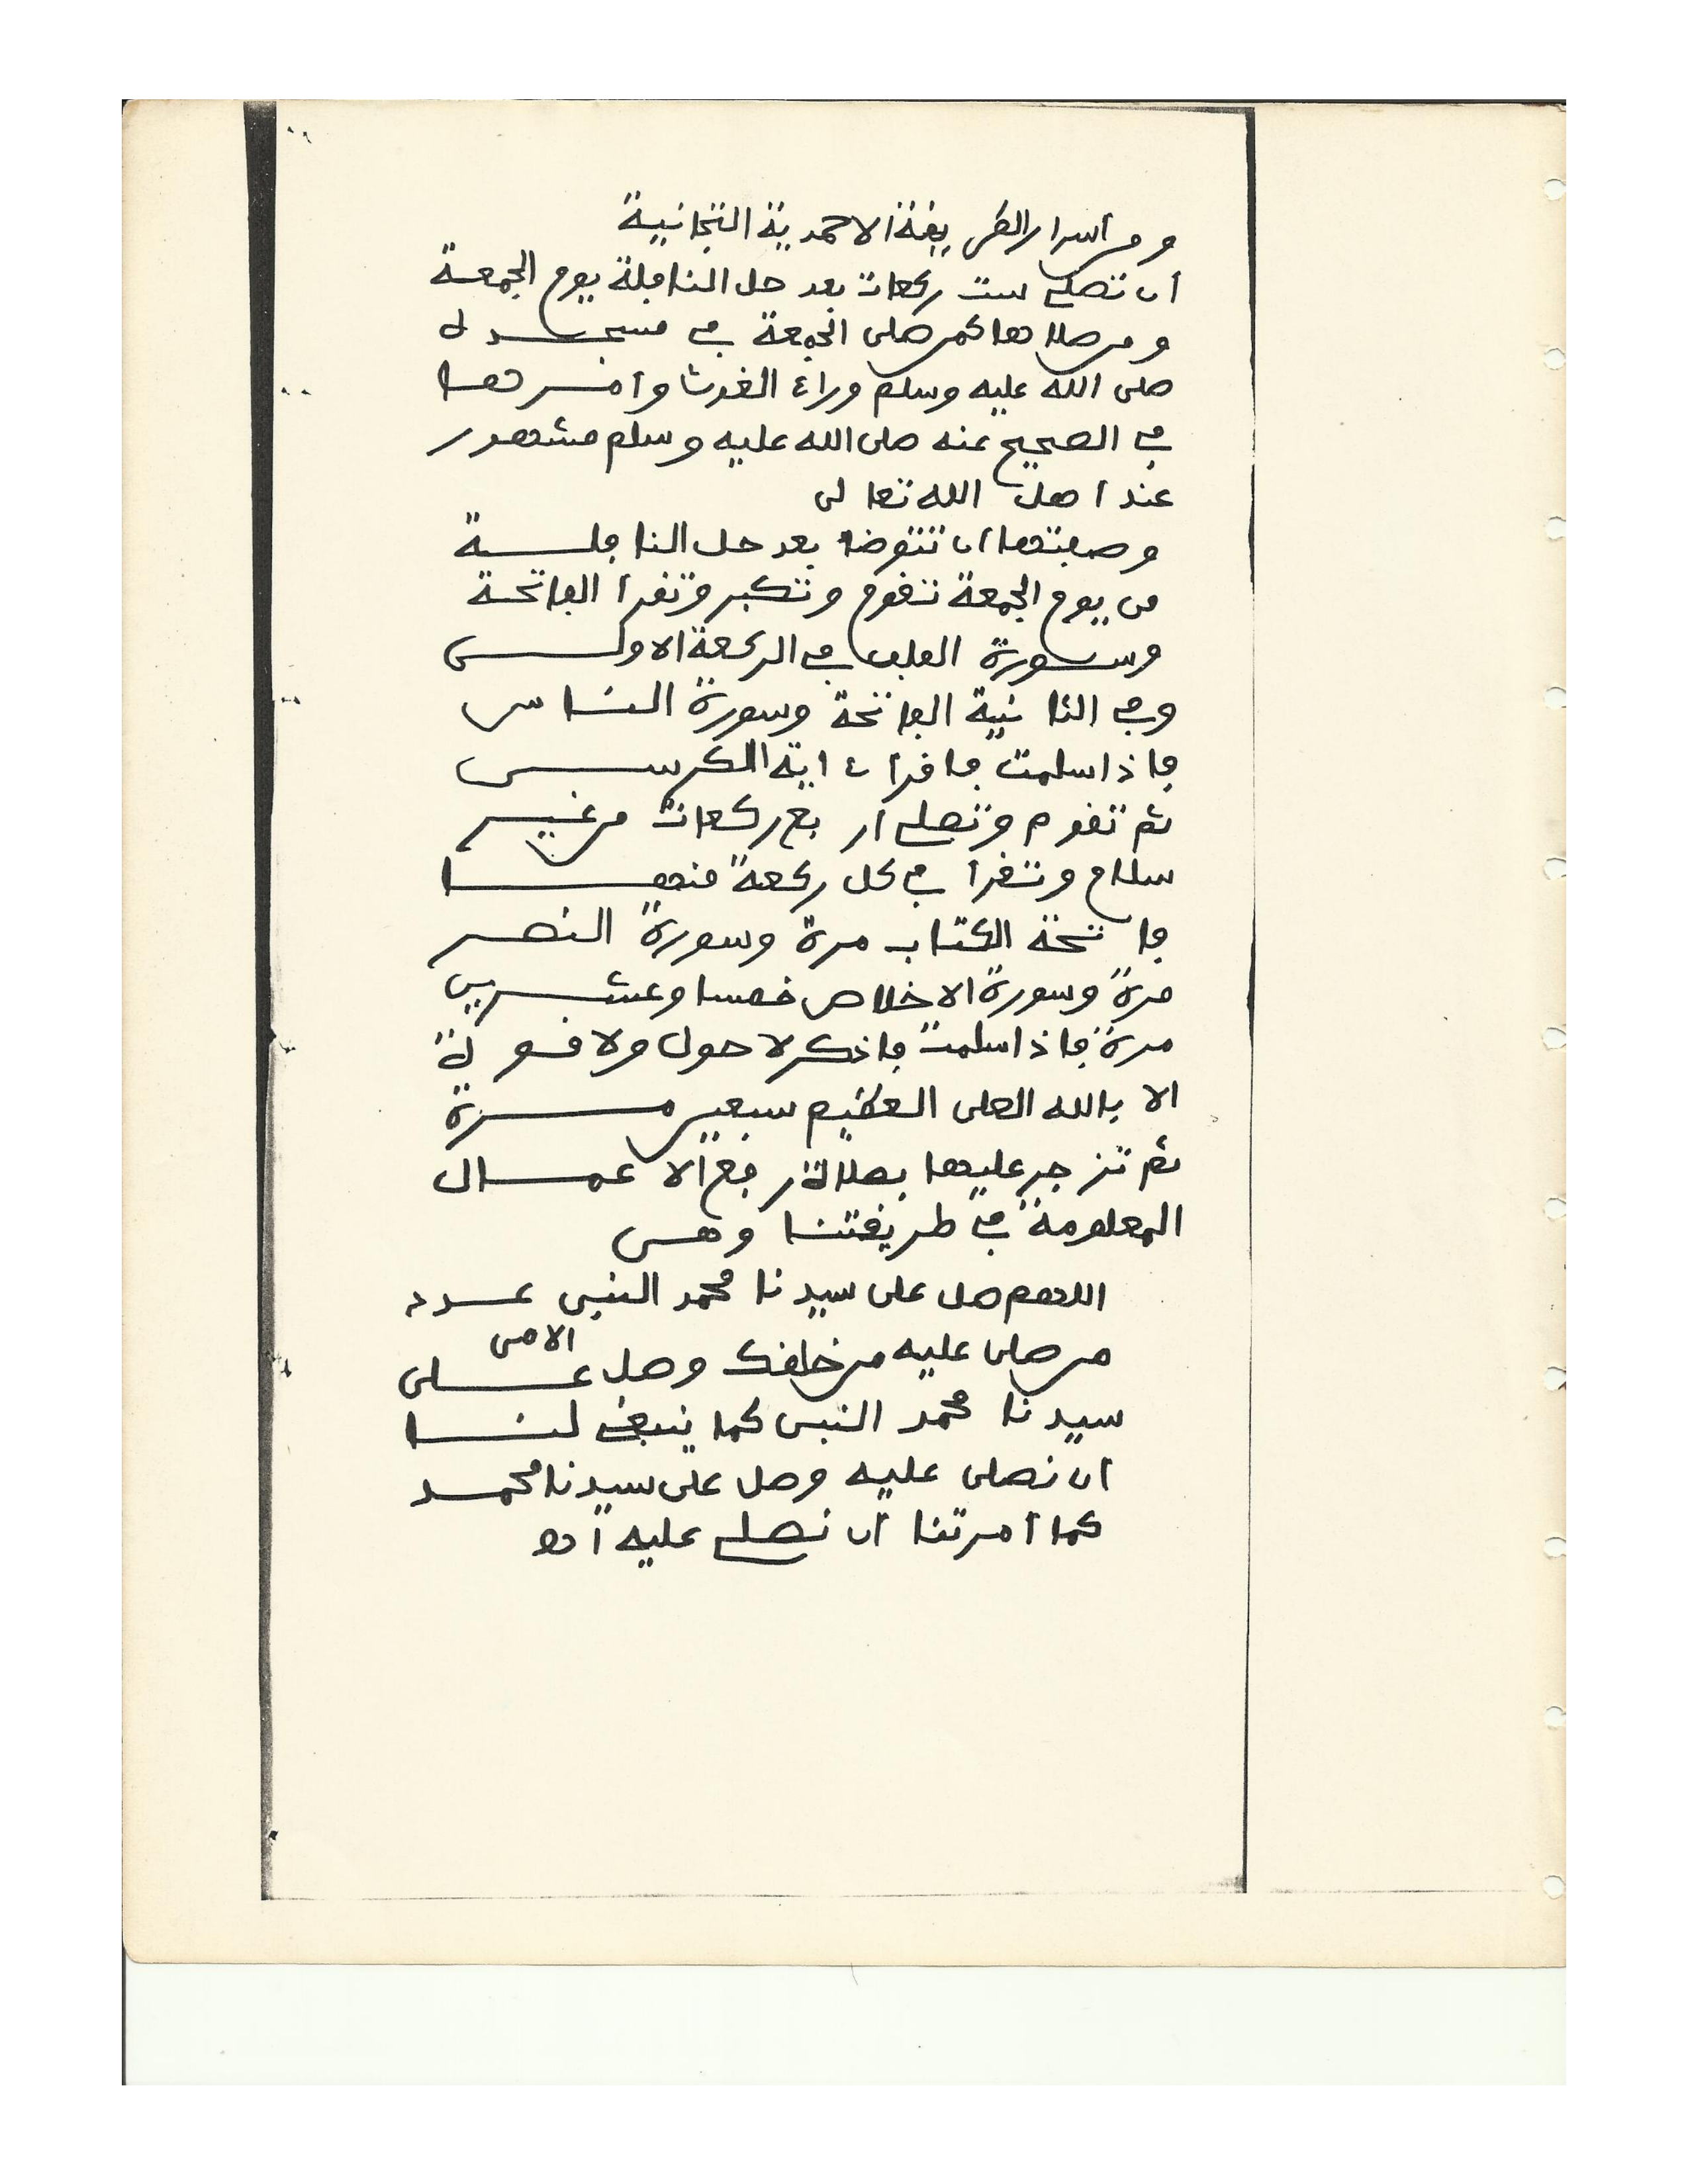 ومن أسرار الطريقة الاحمدية التجانية
ان تصلي ست ركعات بعد حل النافلة يوم الجمعة
ومن صلاها كمن صلى الجمعة في مسجده
صلى الله عليه وسلم وراء الغوث وامرها
في الصحيح عنه صلى الله عليه وسلم مشهور
عند اهل الله تعالى
وصفتها ان تتوضا بعد حل النافلة
من يوم الجمعة تقوم وتكبر وتقرأ الفاتحة
وسورة الفلق في الركعة الاولى
وفي الثانية الفاتحة وسورة الناس
فاذا سلمت فاقراء اية الكرسي
ثم تقوم وتصلي أربع ركعات من غير
سلام وتقرأ في كل ركعة منها
فاتحة الكتاب مرة وسورة النصر
مرة وسورة الاخلاص خمسا وعشرين
مرة فاذا سلمت فاذكر لا حول ولا قوة
الا بالله العلى العظيم سبعين مرة
ثم تزجر عليها بصلاة رفع الاعمال
المعلومة في طريقتنا وهى
اللهم صل على سيدنا محمد النبى عدد
من صلى عليه من خلقك وصل على
الامى
سيدنا محمد النبى كما ينبغي لنا
ان نصلى عليه وصل على سيدنا محمد
كما أمرتنا أن نصلي عليه أده